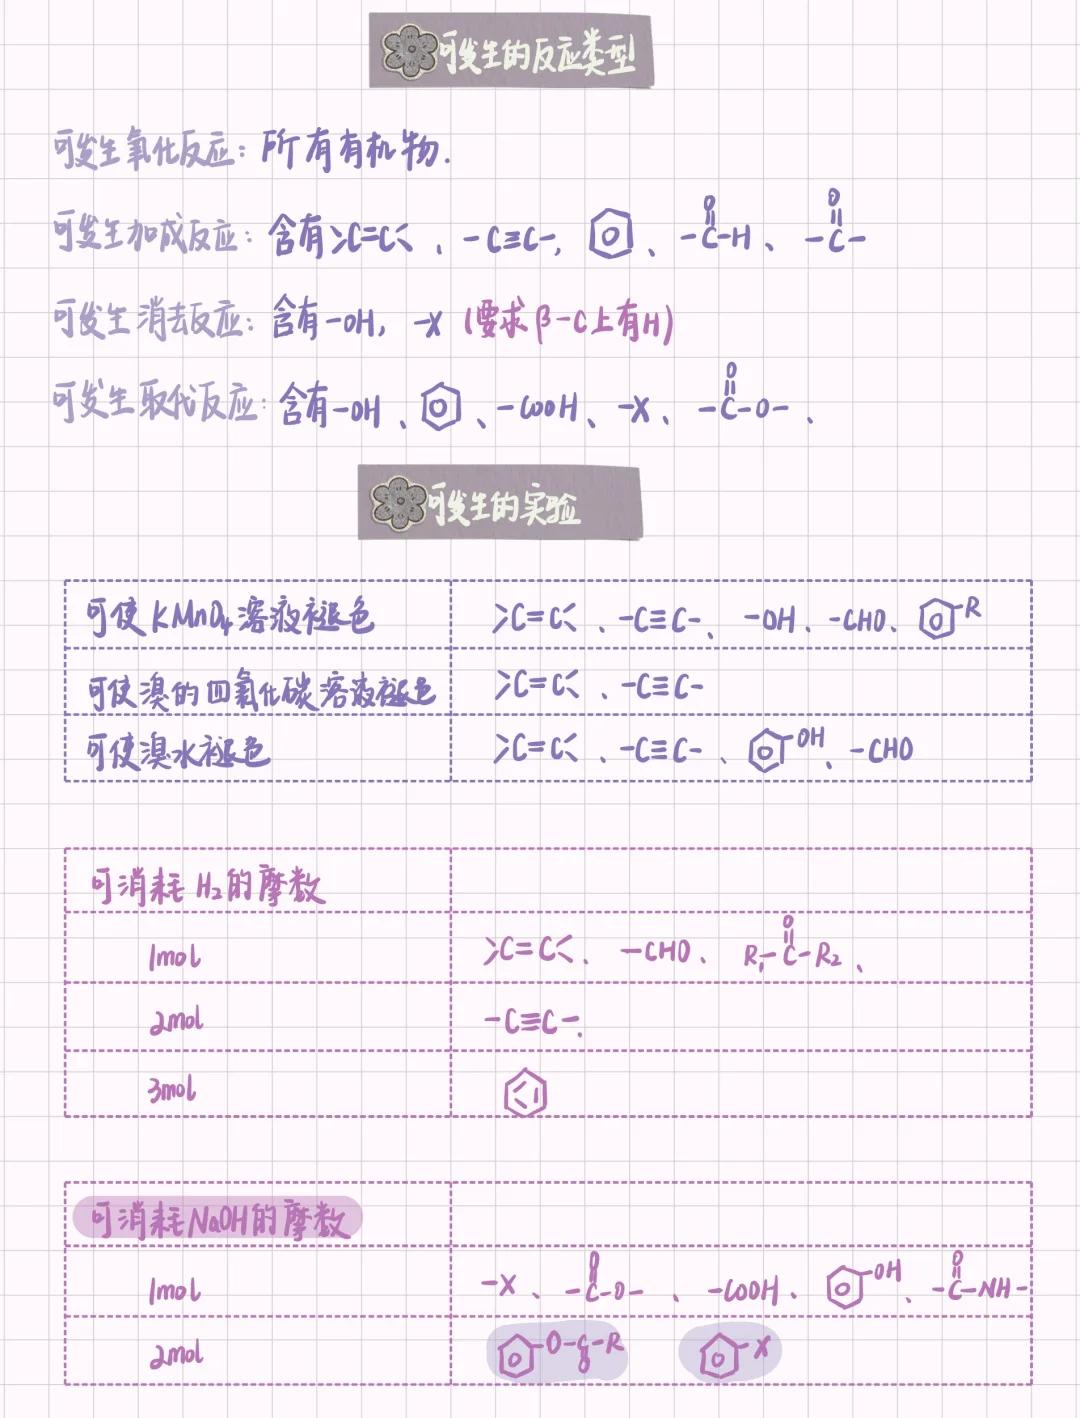 可发生的反应类型
可发生氧化反应: 所有有机物.
可发生加成反应: 含有>C=C<、-C≡C-, ⌬、-C(=O)-H、-C(=O)-
可发生消去反应: 含有-OH, -X (要求β-C上有H)
可发生取代反应: 含有-OH、⌬、-COOH、-X、-C(=O)-O-、
可发生的实验
可使KMnO₄溶液褪色 >C=C<、-C≡C-、-OH、-CHO、⌬-R
可使溴的四氧化碳溶液褪色 >C=C<、-C≡C-
可使溴水褪色 >C=C<、-C≡C-、⌬-OH、-CHO
可消耗H₂的摩数
1mol >C=C<、-CHO、R₁-C(=O)-R₂、
2mol -C≡C-.
3mol ⌬
可消耗NaOH的摩数
1mol -X、-C(=O)-O-、-COOH、⌬-OH、-C(=O)-NH-
2mol ⌬-O-C(=O)-R ⌬-X